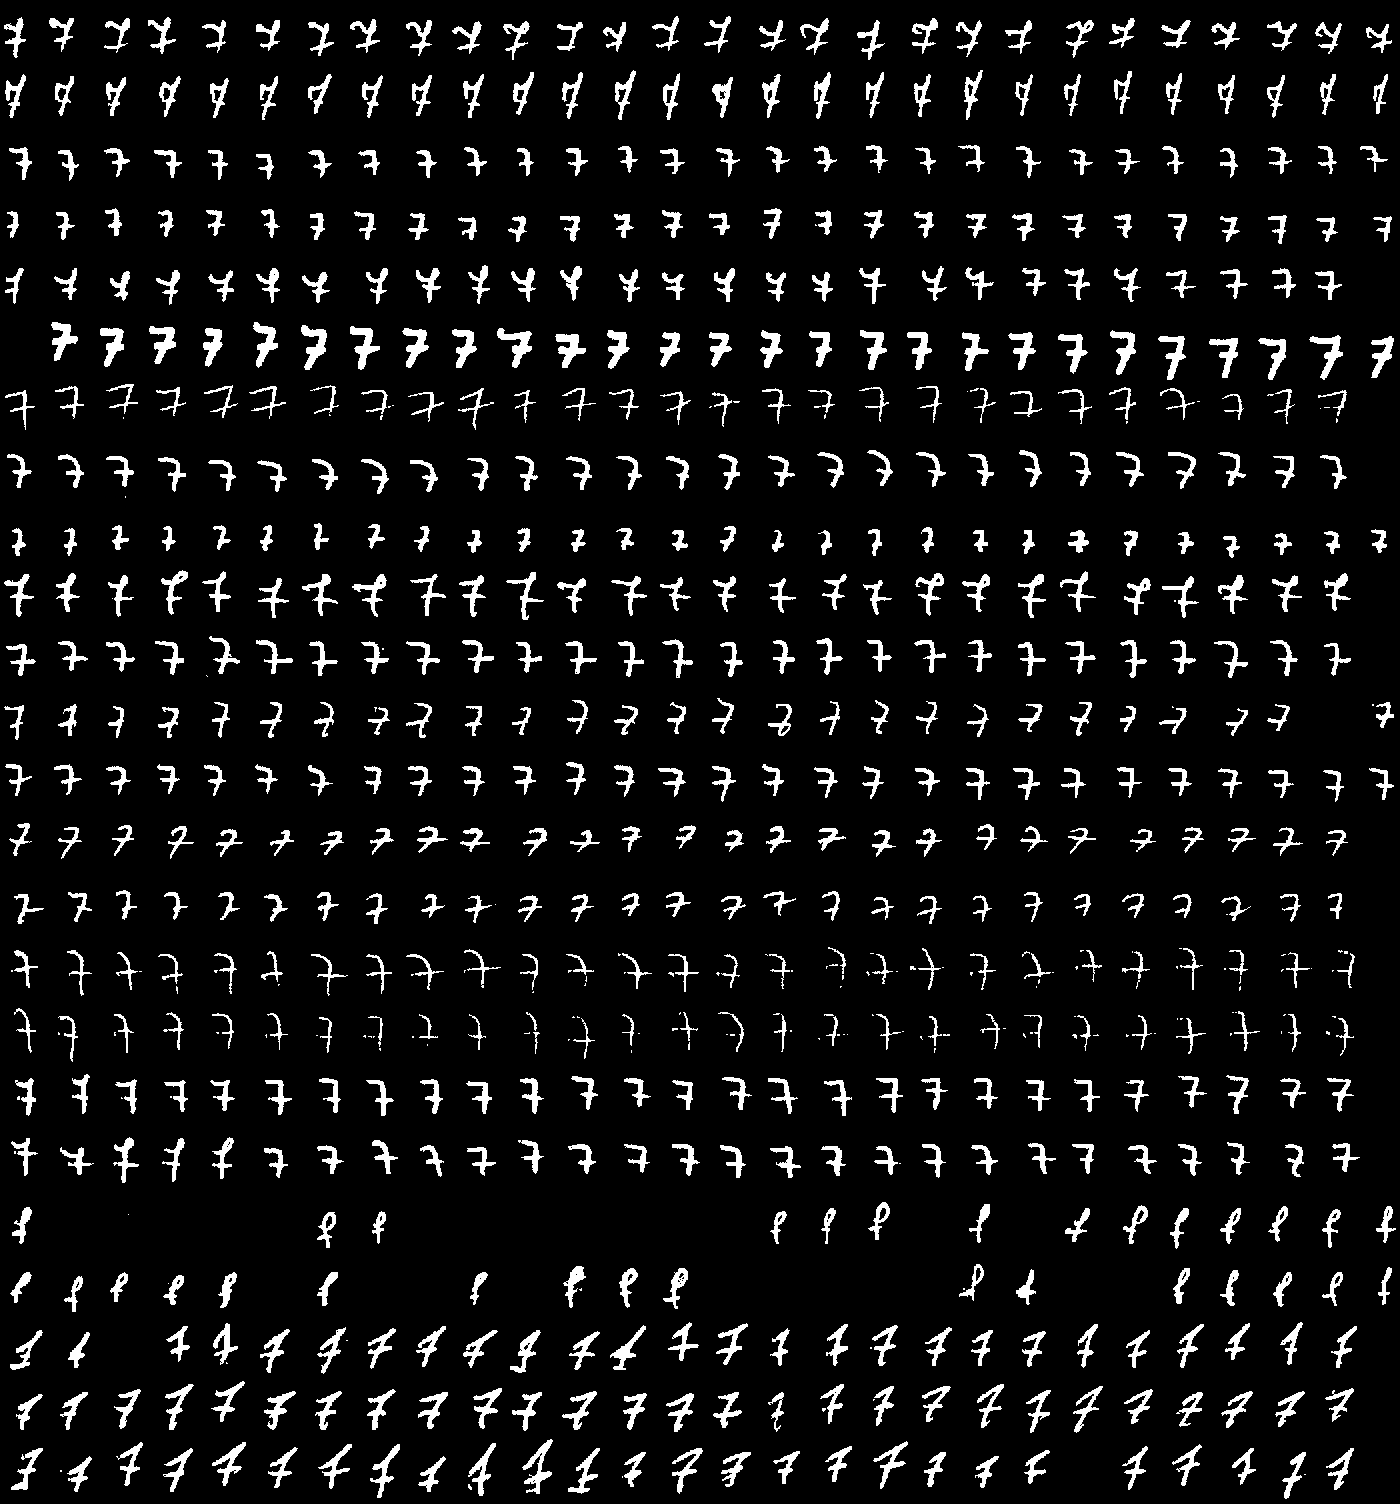 7 7 7 7 7 7 7 7 7 7 7 7 7 7 7 7 7 7 7 7 7 7 7 7 7 7 7 7
7 7 7 7 7 7 7 7 7 7 7 7 7 7 7 7 7 7 7 7 7 7 7 7 7 7 7 7
7 7 7 7 7 7 7 7 7 7 7 7 7 7 7 7 7 7 7 7 7 7 7 7 7 7 7 7
7 7 7 7 7 7 7 7 7 7 7 7 7 7 7 7 7 7 7 7 7 7 7 7 7 7 7 7
7 7 7 7 7 7 7 7 7 7 7 7 7 7 7 7 7 7 7 7 7 7 7 7 7 7 7
7 7 7 7 7 7 7 7 7 7 7 7 7 7 7 7 7 7 7 7 7 7 7 7 7 7 7
7 7 7 7 7 7 7 7 7 7 7 7 7 7 7 7 7 7 7 7 7 7 7 7 7 7 7
7 7 7 7 7 7 7 7 7 7 7 7 7 7 7 7 7 7 7 7 7 7 7 7 7 7 7
7 7 7 7 7 7 7 7 7 7 7 7 7 7 7 7 7 7 7 7 7 7 7 7 7 7 7 7
7 7 7 7 7 7 7 7 7 7 7 7 7 7 7 7 7 7 7 7 7 7 7 7 7 7 7
7 7 7 7 7 7 7 7 7 7 7 7 7 7 7 7 7 7 7 7 7 7 7 7 7 7 7
7 7 7 7 7 7 7 7 7 7 7 7 7 7 7 7 7 7 7 7 7 7 7 7 7 7 7
7 7 7 7 7 7 7 7 7 7 7 7 7 7 7 7 7 7 7 7 7 7 7 7 7 7 7 7
7 7 7 7 7 7 7 7 7 7 7 7 7 7 7 7 7 7 7 7 7 7 7 7 7 7 7
7 7 7 7 7 7 7 7 7 7 7 7 7 7 7 7 7 7 7 7 7 7 7 7 7 7 7
7 7 7 7 7 7 7 7 7 7 7 7 7 7 7 7 7 7 7 7 7 7 7 7 7 7 7
7 7 7 7 7 7 7 7 7 7 7 7 7 7 7 7 7 7 7 7 7 7 7 7 7 7 7
7 7 7 7 7 7 7 7 7 7 7 7 7 7 7 7 7 7 7 7 7 7 7 7 7 7 7
7 7 7 7 7 7 7 7 7 7 7 7 7 7 7 7 7 7 7 7 7 7 7 7 7 7 7
7 7 7 7 7 7 7 7 7 7 7 7 7 7
7 7 7 7 7 7 7 7 7 7 7 7 7 7 7 7 7
7 7 7 7 7 7 7 7 7 7 7 7 7 7 7 7 7 7 7 7 7 7 7 7 7 7
7 7 7 7 7 7 7 7 7 7 7 7 7 7 7 7 7 7 7 7 7 7 7 7 7 7 7
7 7 7 7 7 7 7 7 7 7 7 7 7 7 7 7 7 7 7 7 7 7 7 7 7 7